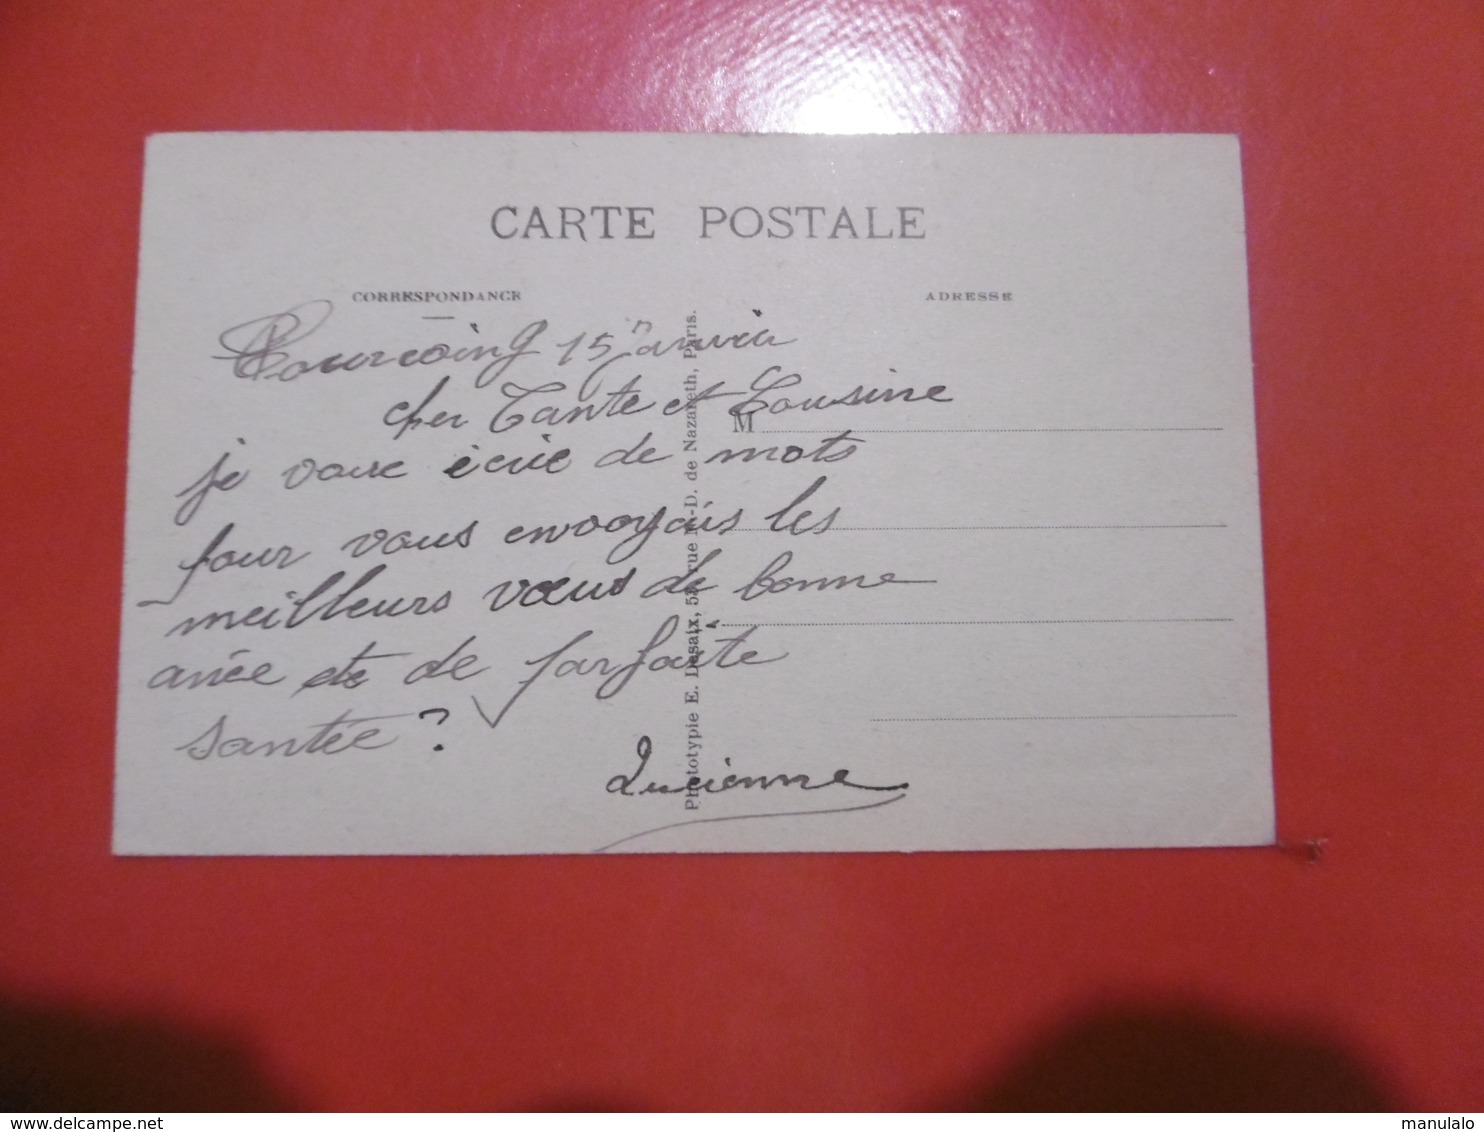 CARTE POSTALE
CORRESPONDANCE
ADRESSE
Tourcoing 15 Janvier
cher Tante et Cousine
je vous écrie de mots
pour vous envooyais les
meilleurs vœus de bonne
anée et de parfaite
santée ?
Lucienne
M
A
Phototypie E. Desaix, rue N.-D. de Nazareth, Paris.
www.delcampe.net
manulalo